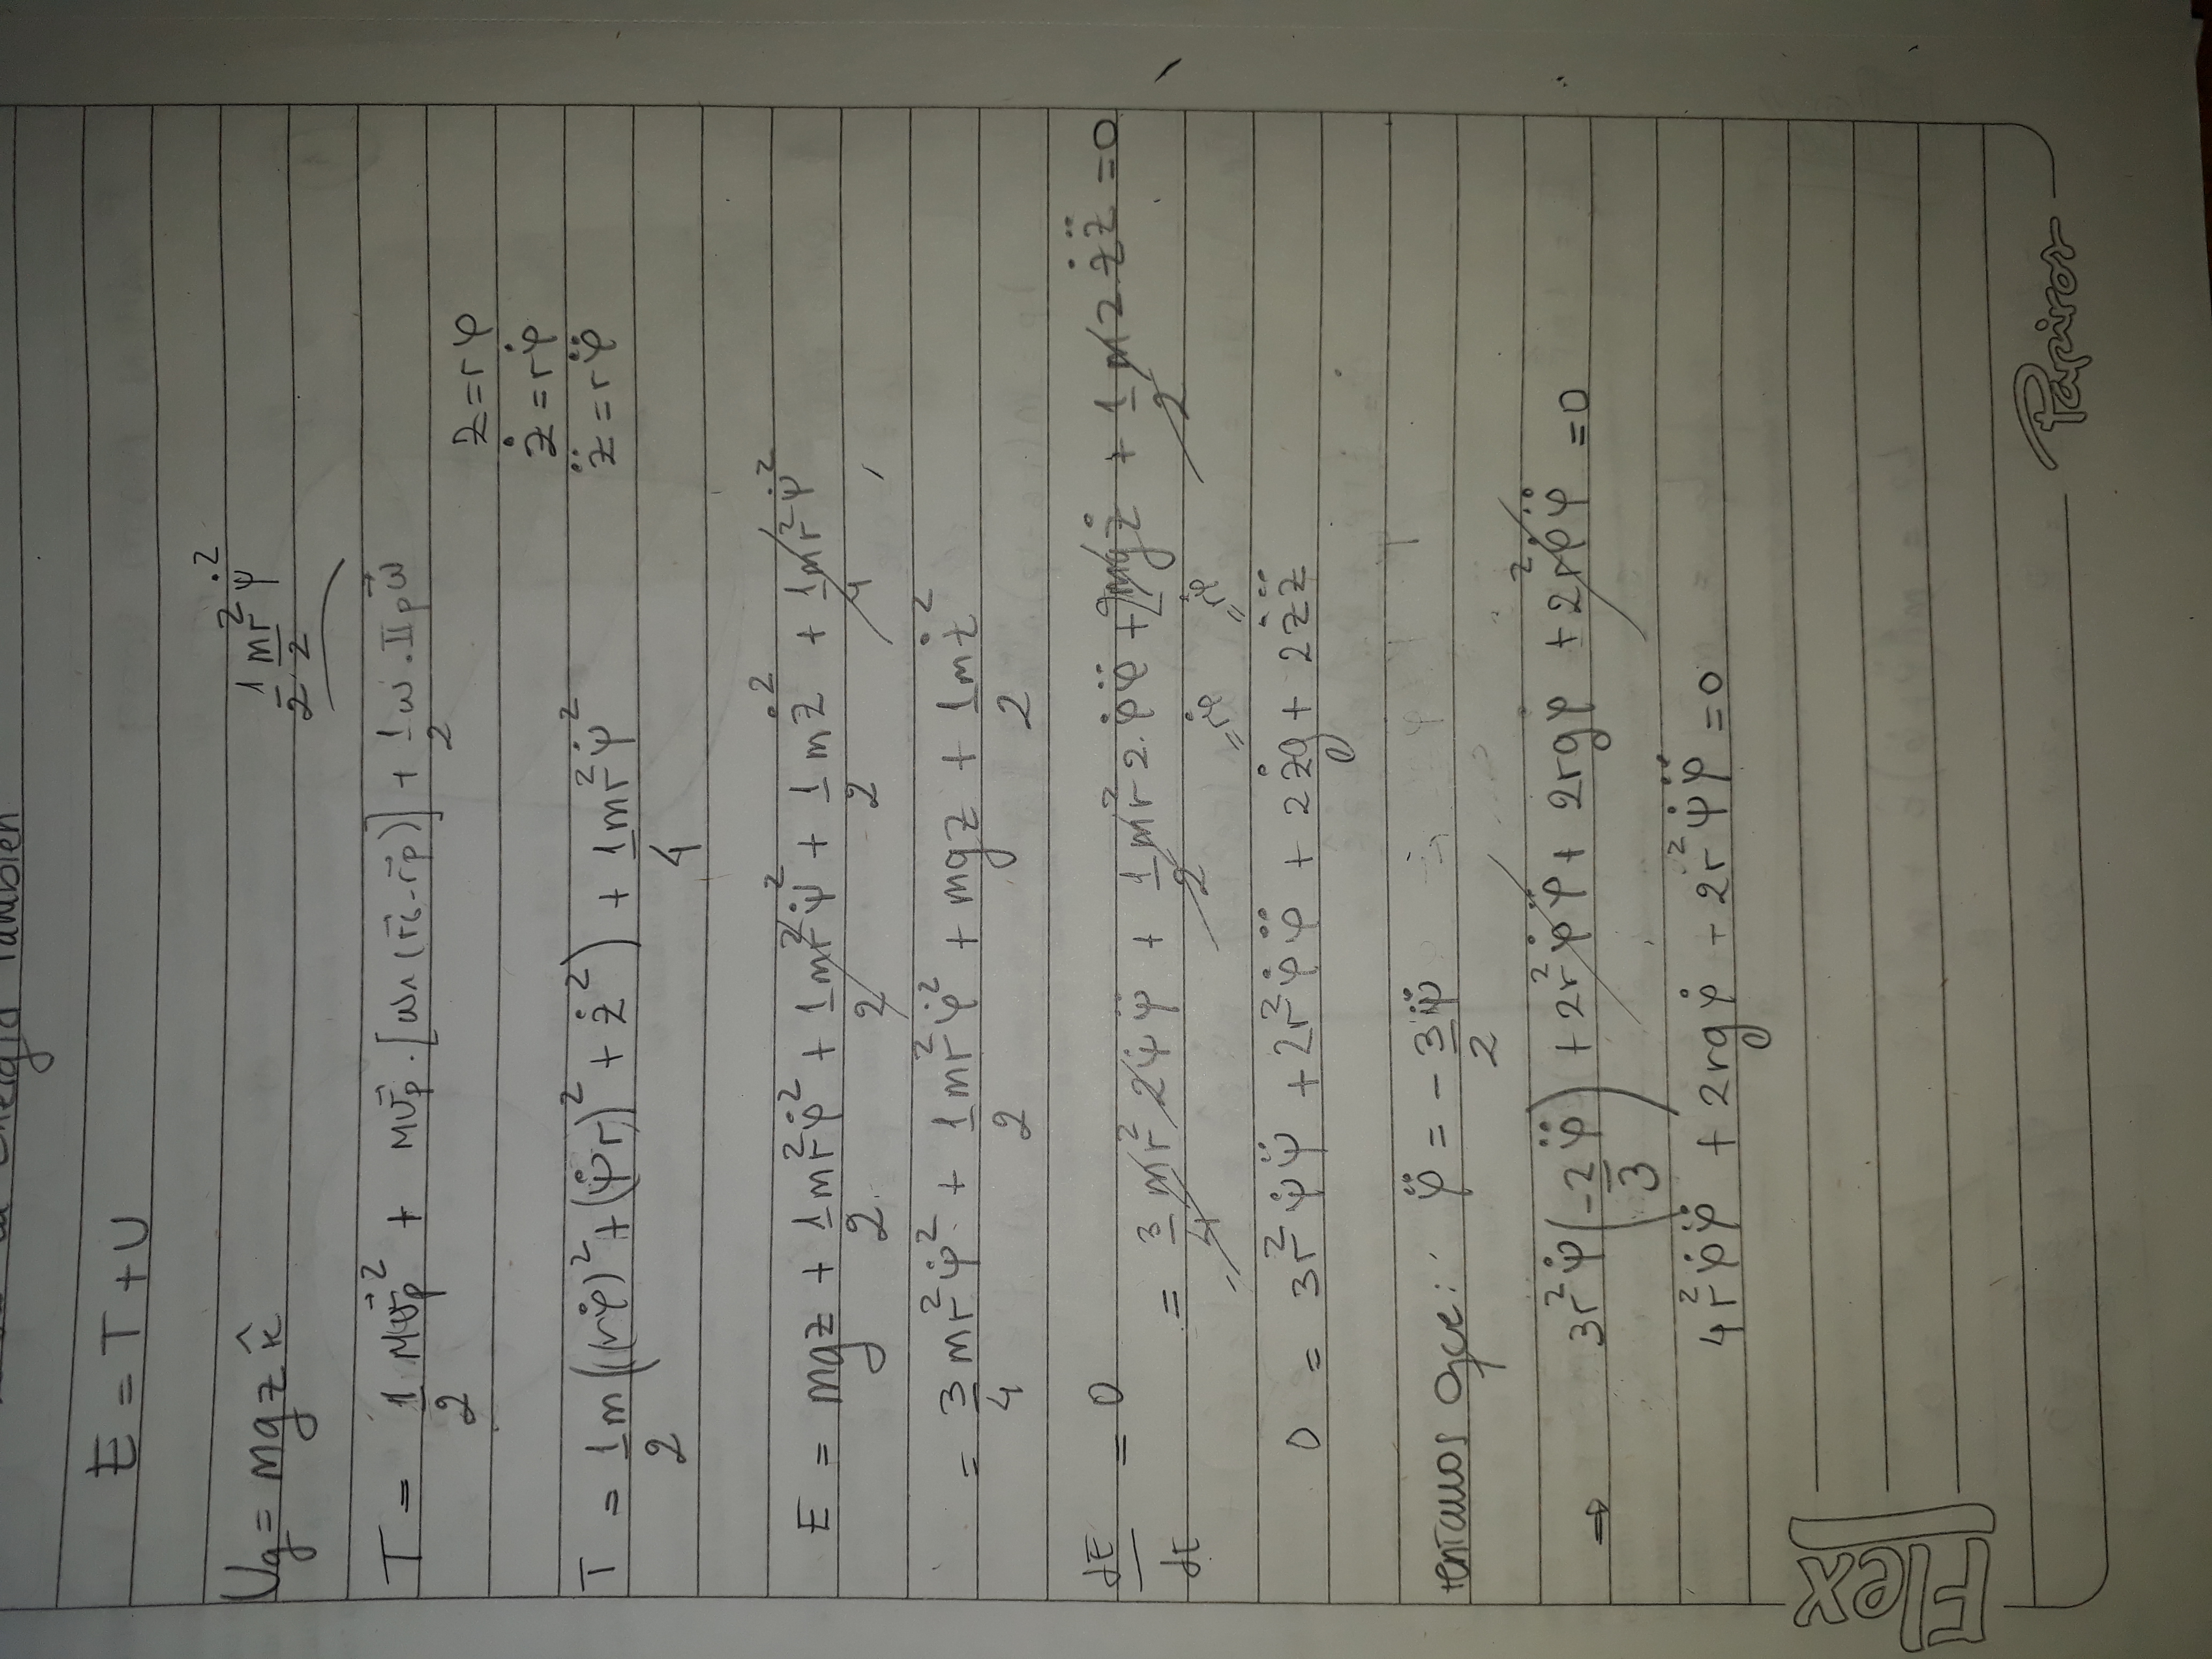 la Energía También
E = T + U
Ug = mgz k̂
1/2 mr²/2 ψ̇²
T = 1/2 Mv⃗p² + Mv⃗p · [ω∧(r⃗G - r⃗p)] + 1/2 ω · IIp ω⃗
z = rφ
ż = rφ̇
z̈ = rφ̈
T = 1/2 m((rφ̇)² + (ψ̇r)² + ż²) + 1/4 mr²ψ̇²
E = mgz + 1/2 mr²φ̇² + 1/2 mr²ψ̇² + 1/2 mż² + 1/4 mr²ψ̇²
= 3/4 mr²ψ̇² + 1/2 mr²φ̇² + mgz + 1/2 mż²
dE/dt = 0
= 3/4 mr² 2ψ̇ψ̈ + 1/2 mr² 2·φ̇φ̈ + mgż + 1/2 m 2 żz̈ = 0
=rφ̇ =rφ̇
0 = 3r²ψ̇ψ̈ + 2r²φ̇φ̈ + 2żg + 2żz̈
teníamos que: φ̈ = -3/2 ψ̈
⇒ 3r²ψ̇(-2/3 φ̈) + 2r²φ̇φ̈ + 2rgφ̇ + 2r²φ̇φ̈ = 0
4r²φ̇φ̈ + 2rgφ̇ - 2r²ψ̇φ̈ = 0
Flex
Papiros